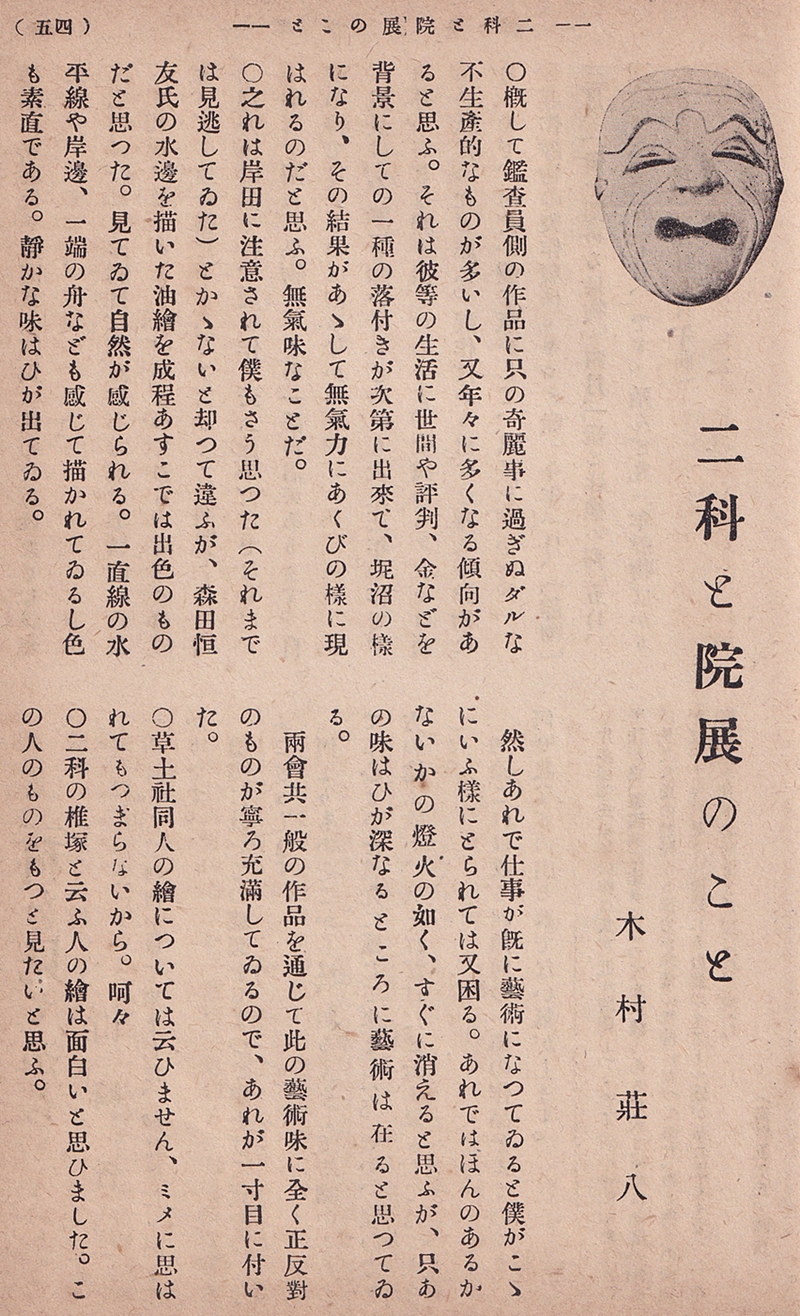 （四五）
――二科と院展のこと――
二科と院展のこと
木村莊八
〇概して鑑査員側の作品に只の奇麗事に過ぎぬダルな
不生産的なものが多いし、又年々に多くなる傾向があ
ると思ふ。それは彼等の生活に世間や評判、金などを
背景にしての一種の落付きが次第に出來て、泥沼の樣
になり、その結果があゝして無氣力にあくびの樣に現
はれるのだと思ふ。無氣味なことだ。
〇之れは岸田に注意されて僕もさう思つた（それまで
は見逃してゐた）とかゝないと却つて違ふが、森田恒
友氏の水邊を描いた油繪を成程あすこでは出色のもの
だと思つた。見てゐて自然が感じられる。一直線の水
平線や岸邊、一端の舟なども感じて描かれてゐるし色
も素直である。靜かな味はひが出てゐる。
然しあれで仕事が既に藝術になつてゐると僕がこゝ
にいふ樣にとられては又困る。あれではほんのあるか
ないかの燈火の如く、すぐに消えると思ふが、只あ
の味はひが深なるところに藝術は在ると思つてゐ
る。
兩會共一般の作品を通じて此の藝術味に全く正反對
のものが寧ろ充滿してゐるので、あれが一寸目に付い
た。
〇草土社同人の繪については云ひません、ミメに思は
れてもつまらないから。呵々
〇二科の椎塚と云ふ人の繪は面白いと思ひました。こ
の人のものをもつと見たいと思ふ。